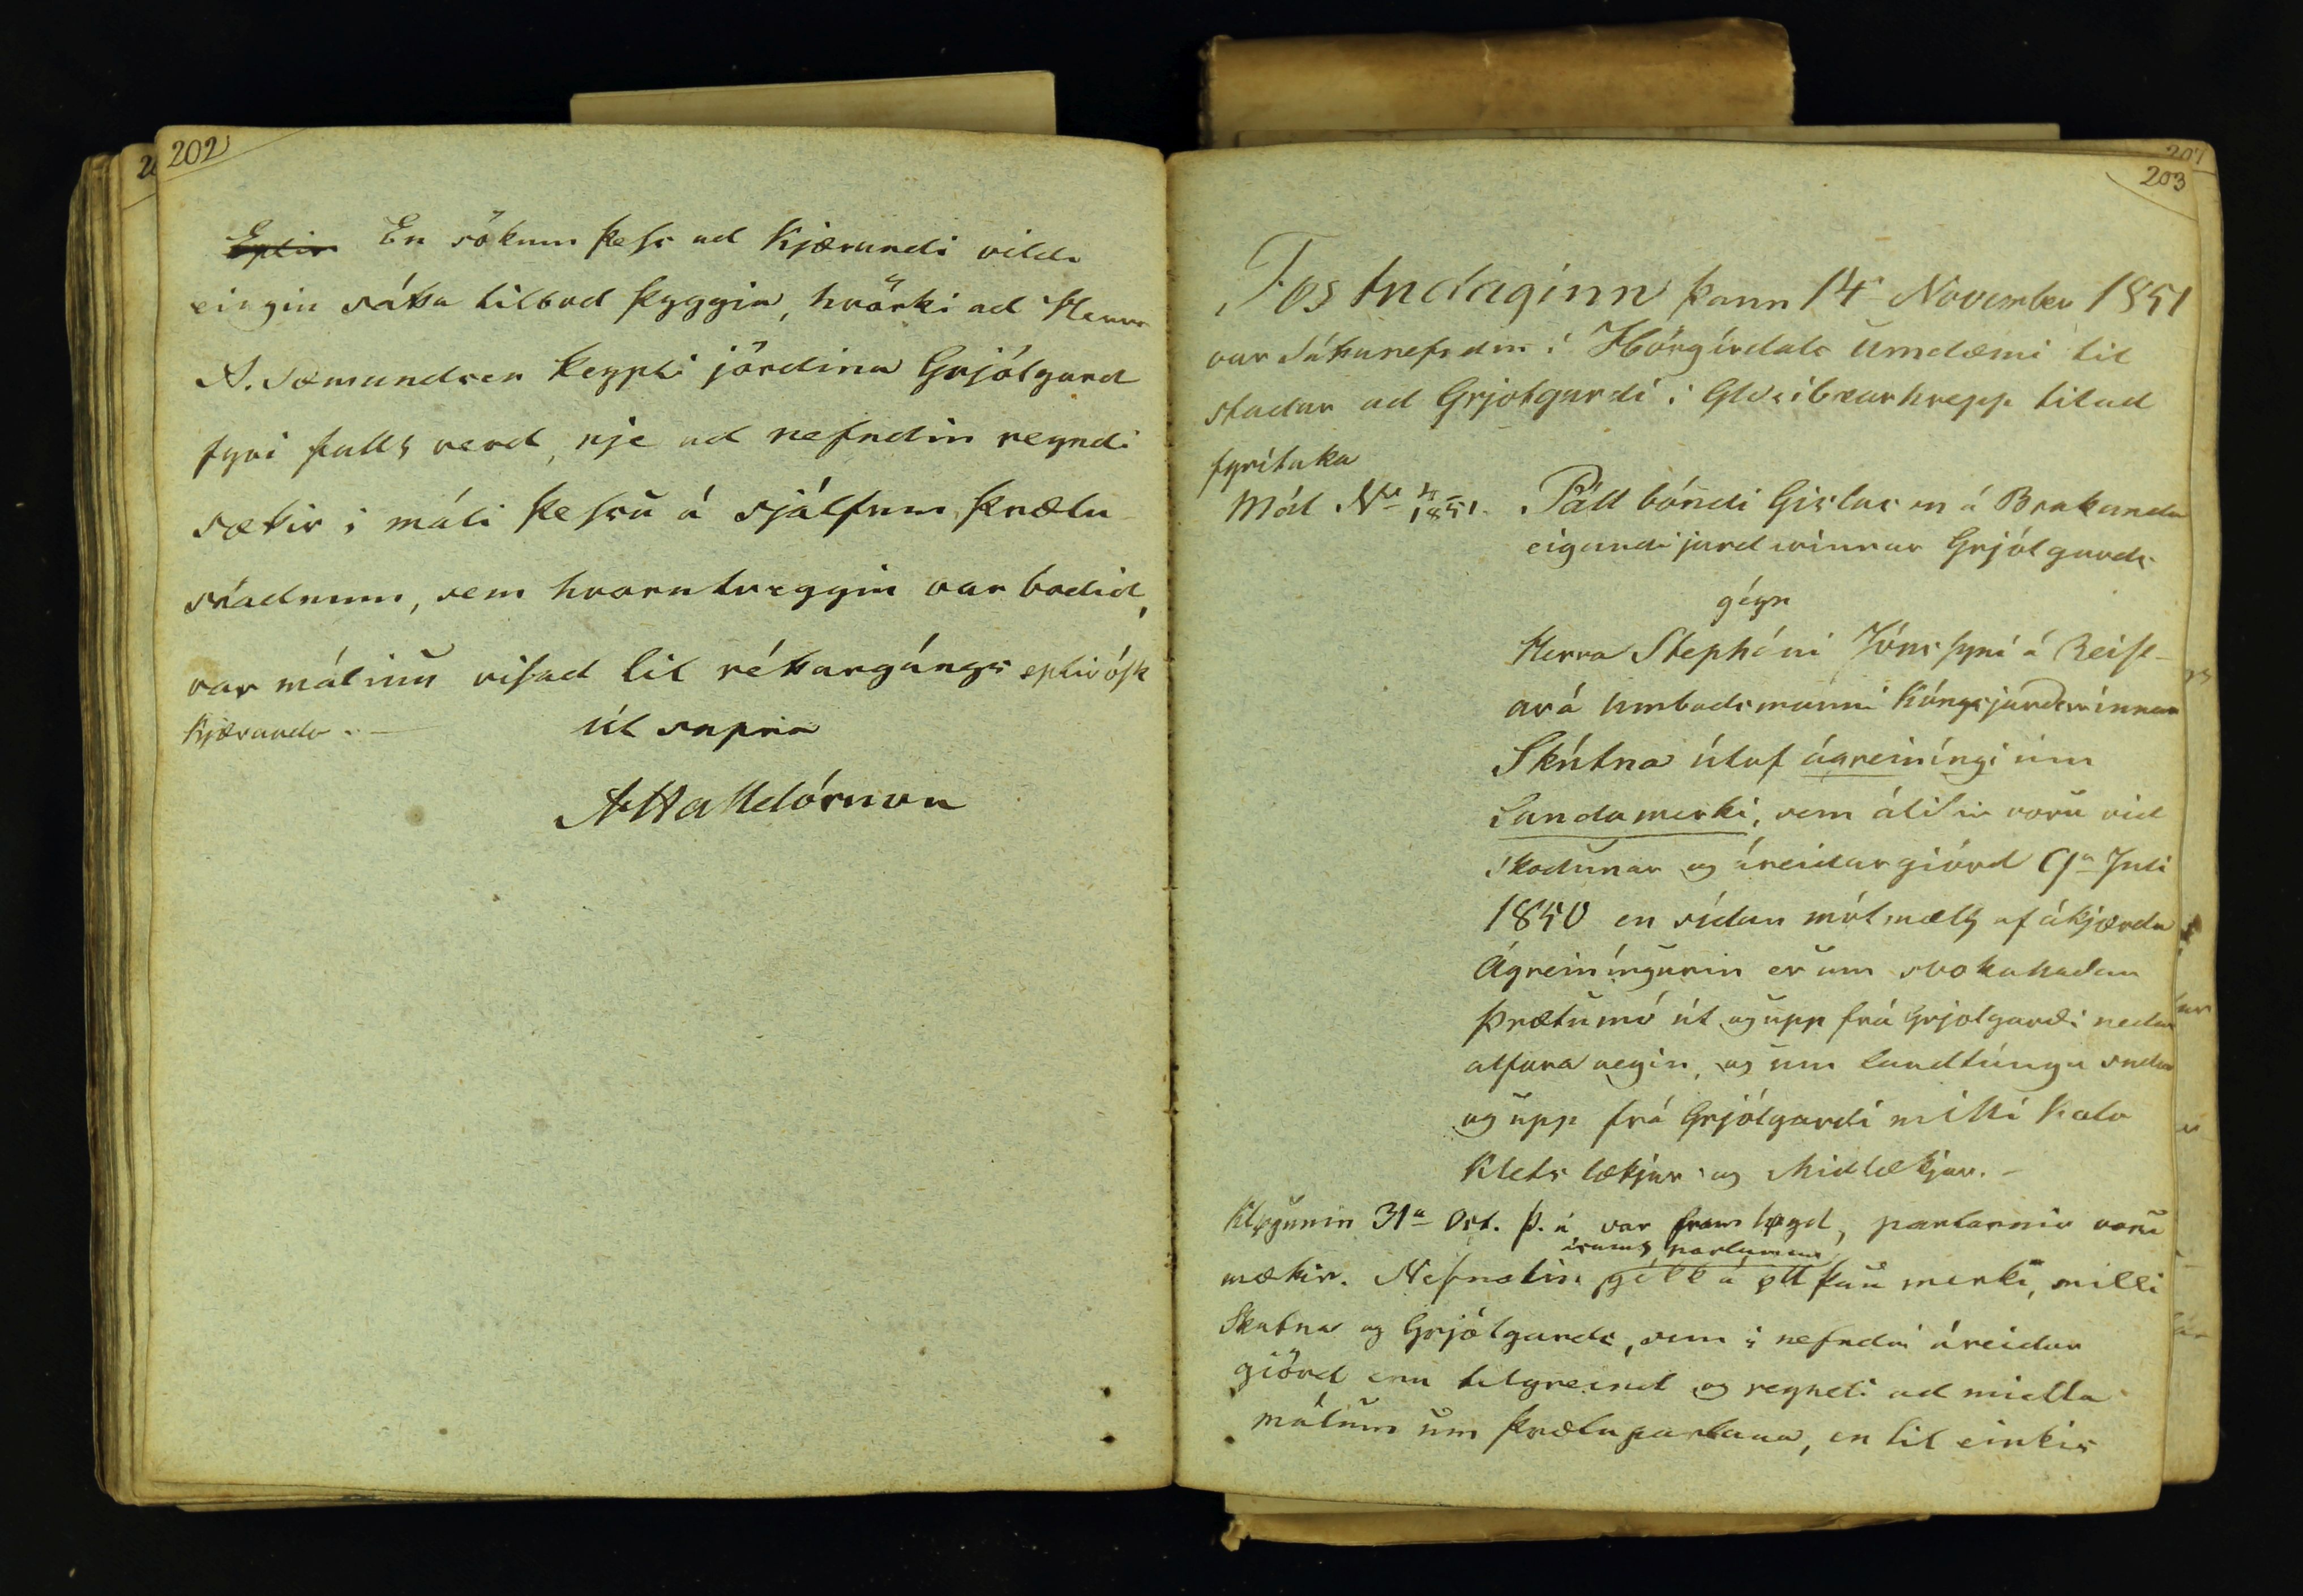 202
Eptir En sökum þess ad Kjærandi vildi
eingin sátta tilbod þyggia, hvörki ad Herra
A. Sæmundsen keypti jördina Grjótgard
fyri fullt verd, nje ad nefndin reyndi
sættir i máli þessu á sjálfum þrætu
stadnum, sem hvorutveggju var bodid,
var málinu vísad til réttargángs eptir ósk
Kjæranda. — Út supra
A Halldórsson
207
203
Föstudaginn þann 14 November 1851
var Sáttanefndin í Hörgárdals Umdæmi til
stadar ad Grjótgardi i Glæsibæarhrepp til ad
fyrítaka
Mál No 4/1851. Páll bóndi Gislason á Brakanda
eigandi jardarinnar Grjótgards
gégn
Herra Stepháni Jónssyni á Reist-
ará umbodsmanni Kóngsjardarinnar
Skútna útaf ágreiníngi um
Landamerki, sem álitin voru vid
Skodunar og áreidargiörd 9a Juli
1850 en sídan mótmælt af ákjærda
Ágreiníngurin er um svokalladan
Þrætumó út og upp frá Grjotgardi nedan
alfara vegin, og um landtúngu sudur
og upp frá Grjótgardi milli Kalo
Klets lækjar og Midlækjar. —
Klögunin 31a Oct. þ. á var fram lögd, partarnir voru
ásamt pörtunum
mættir. Nefndin gékk á öll þau merki, milli
Skutna og Grjótgards, sem i nefndri áreidar
giörd eru tilgreind og reyndi ad midla
málum um þrætupartana, en til einkis